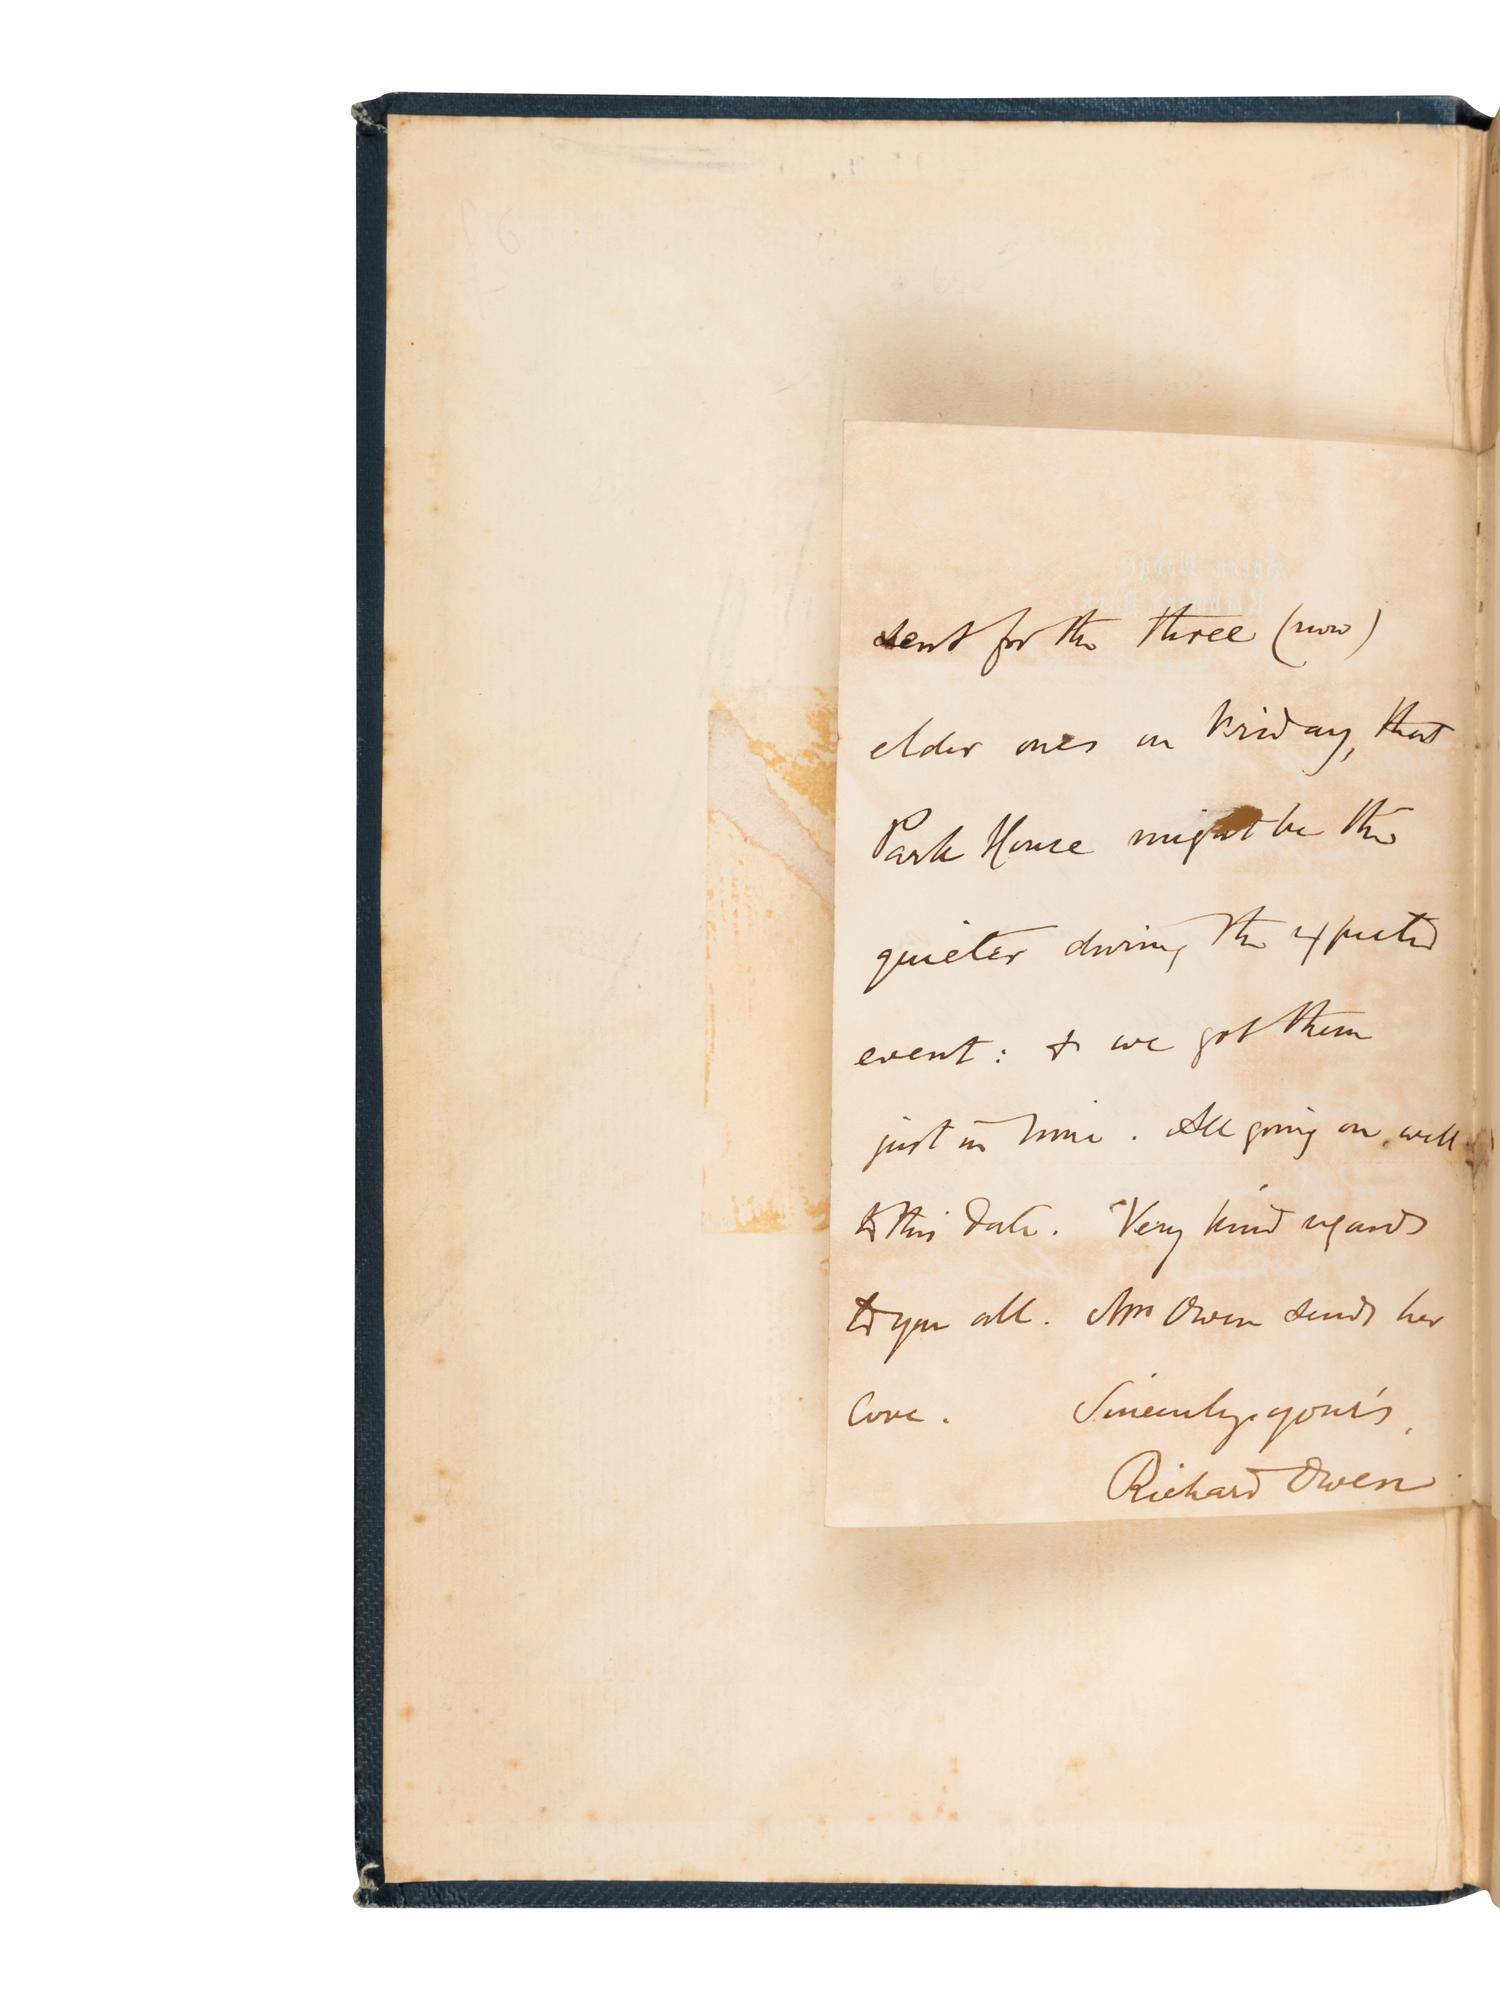 sent for the three (now)
elder ones on Friday, that
Park House might be the
quieter during the expected
event: & we got them
just in time. All going on well
to this date. Very kind regards
to you all. Mrs Owen sends her
love. Sincerely yours,
Richard Owen